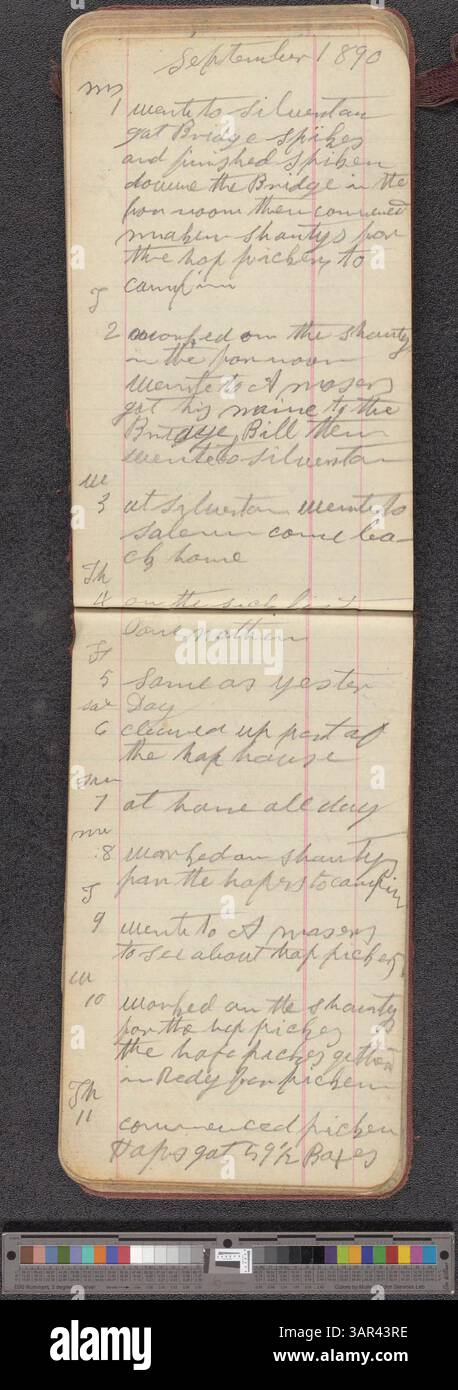 September 1890
m
1 wente to Silvertan
gat Bridge spikes
and finished spiken
doune the Bridge in the
for noon then comenced
maken shantys for
the hop pickers to
camp inn
T
2 worked on the shanty
in the for noon
Wente to A Mosers
got his name to the
Bridge Bill then
wente to Silvertan
W
3 at Sylvertan wente to
Salem come ba
ck home
Th
4 on the sick list
Done nothen
Fr
5 same as yester
Day
Sat
6 cleaned up part of
the hop house
Sun
7 at home all day
m
8 worked on shantys
for the hopers to camp in
T
9 wente to A Mosers
to see about hop pickers
W
10 worked on the shanty
for the hop pickers
the hop pickers getten
in Redy for picken
Th
11 commenced picken
Hops got 59½ Boxes
alamy
alamy
Image ID: 3AR43RE
www.alamy.com